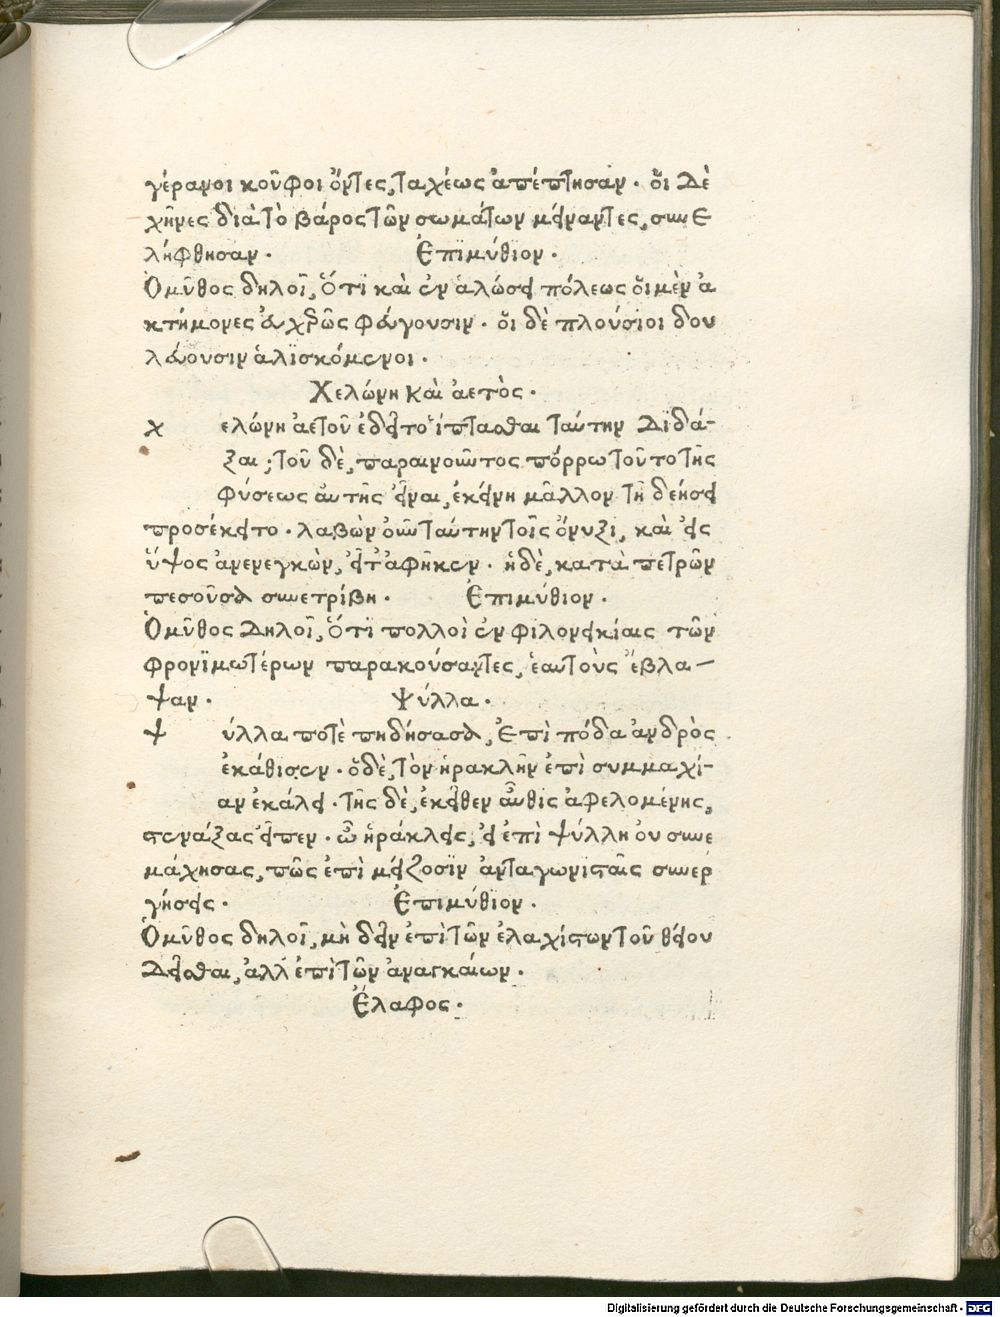 γέρανοι κοῦφοι ὄντες, ταχέως ἀπέπτησαν · ὅι δὲ
χῆνες διὰ τὸ βάρος τῶν σωμάτων μείναντες, συνε
λήφθησαν · Ἐπιμύθιον ·
Ὁ μῦθος δηλοῖ, Ὅτι καὶ ἐν ἁλώσει πόλεως ὅι μὲν ἀ
κτήμονες ἐυχερῶς φέυγουσιν · ὅι δὲ πλούσιοι δου
λέυουσιν ἁλισκόμενοι ·
Χελώνη καὶ ἀετὸς ·
χ ελώνη ἀετοῦ ἐδεῖτο ἵπτασθαι ταύτην διδά-
ξαι ; τοῦ δὲ, παραινοῦντος πόρρω τοῦτο τῆς
φύσεως ἀυτῆς εἶναι, ἐκείνη μᾶλλον τῇ δεήσει
προσέκειτο · λαβὼν οὖν ταύτην τοῖς ὄνυξι, καὶ εἰς
ὕψος ἀνενεγκὼν, εἶτ' ἀφῆκεν · ἡ δὲ, κατὰ πετρῶν
πεσοῦσα συνετρίβη · Ἐπιμύθιον ·
Ὁ μῦθος δηλοῖ, Ὅτι πολλοὶ ἐν φιλονεικίαις τῶν
φρονιμωτέρων παρακούσαντες, ἑαυτοὺς ἔβλα-
ψαν · Ψύλλα ·
ψ ύλλα ποτὲ πηδήσασα, Ἐπὶ πόδα ἀνδρὸς
ἐκάθισεν · ὁ δὲ, τὸν ἡρακλῆν ἐπὶ συμμαχί-
αν ἐκάλει · τῆς δὲ, ἐκεῖθεν αὖθις ἀφελομένης,
στενάξας εἶπεν · ὦ ἡράκλεις, εἰ ἐπὶ ψύλλη ὀυ συνε
μάχησας, πῶς ἐπὶ μείζοσιν ἀνταγωνισταῖς συνερ
γήσεις · Ἐπιμύθιον ·
Ὁ μῦθος δηλοῖ, μὴ δεῖν ἐπὶ τῶν ἐλαχίστων τοῦ θείου
δεῖσθαι, ἀλλ' ἐπὶ τῶν ἀναγκαίων ·
Ἔλαφος ·
Digitalisierung gefördert durch die Deutsche Forschungsgemeinschaft - DFG